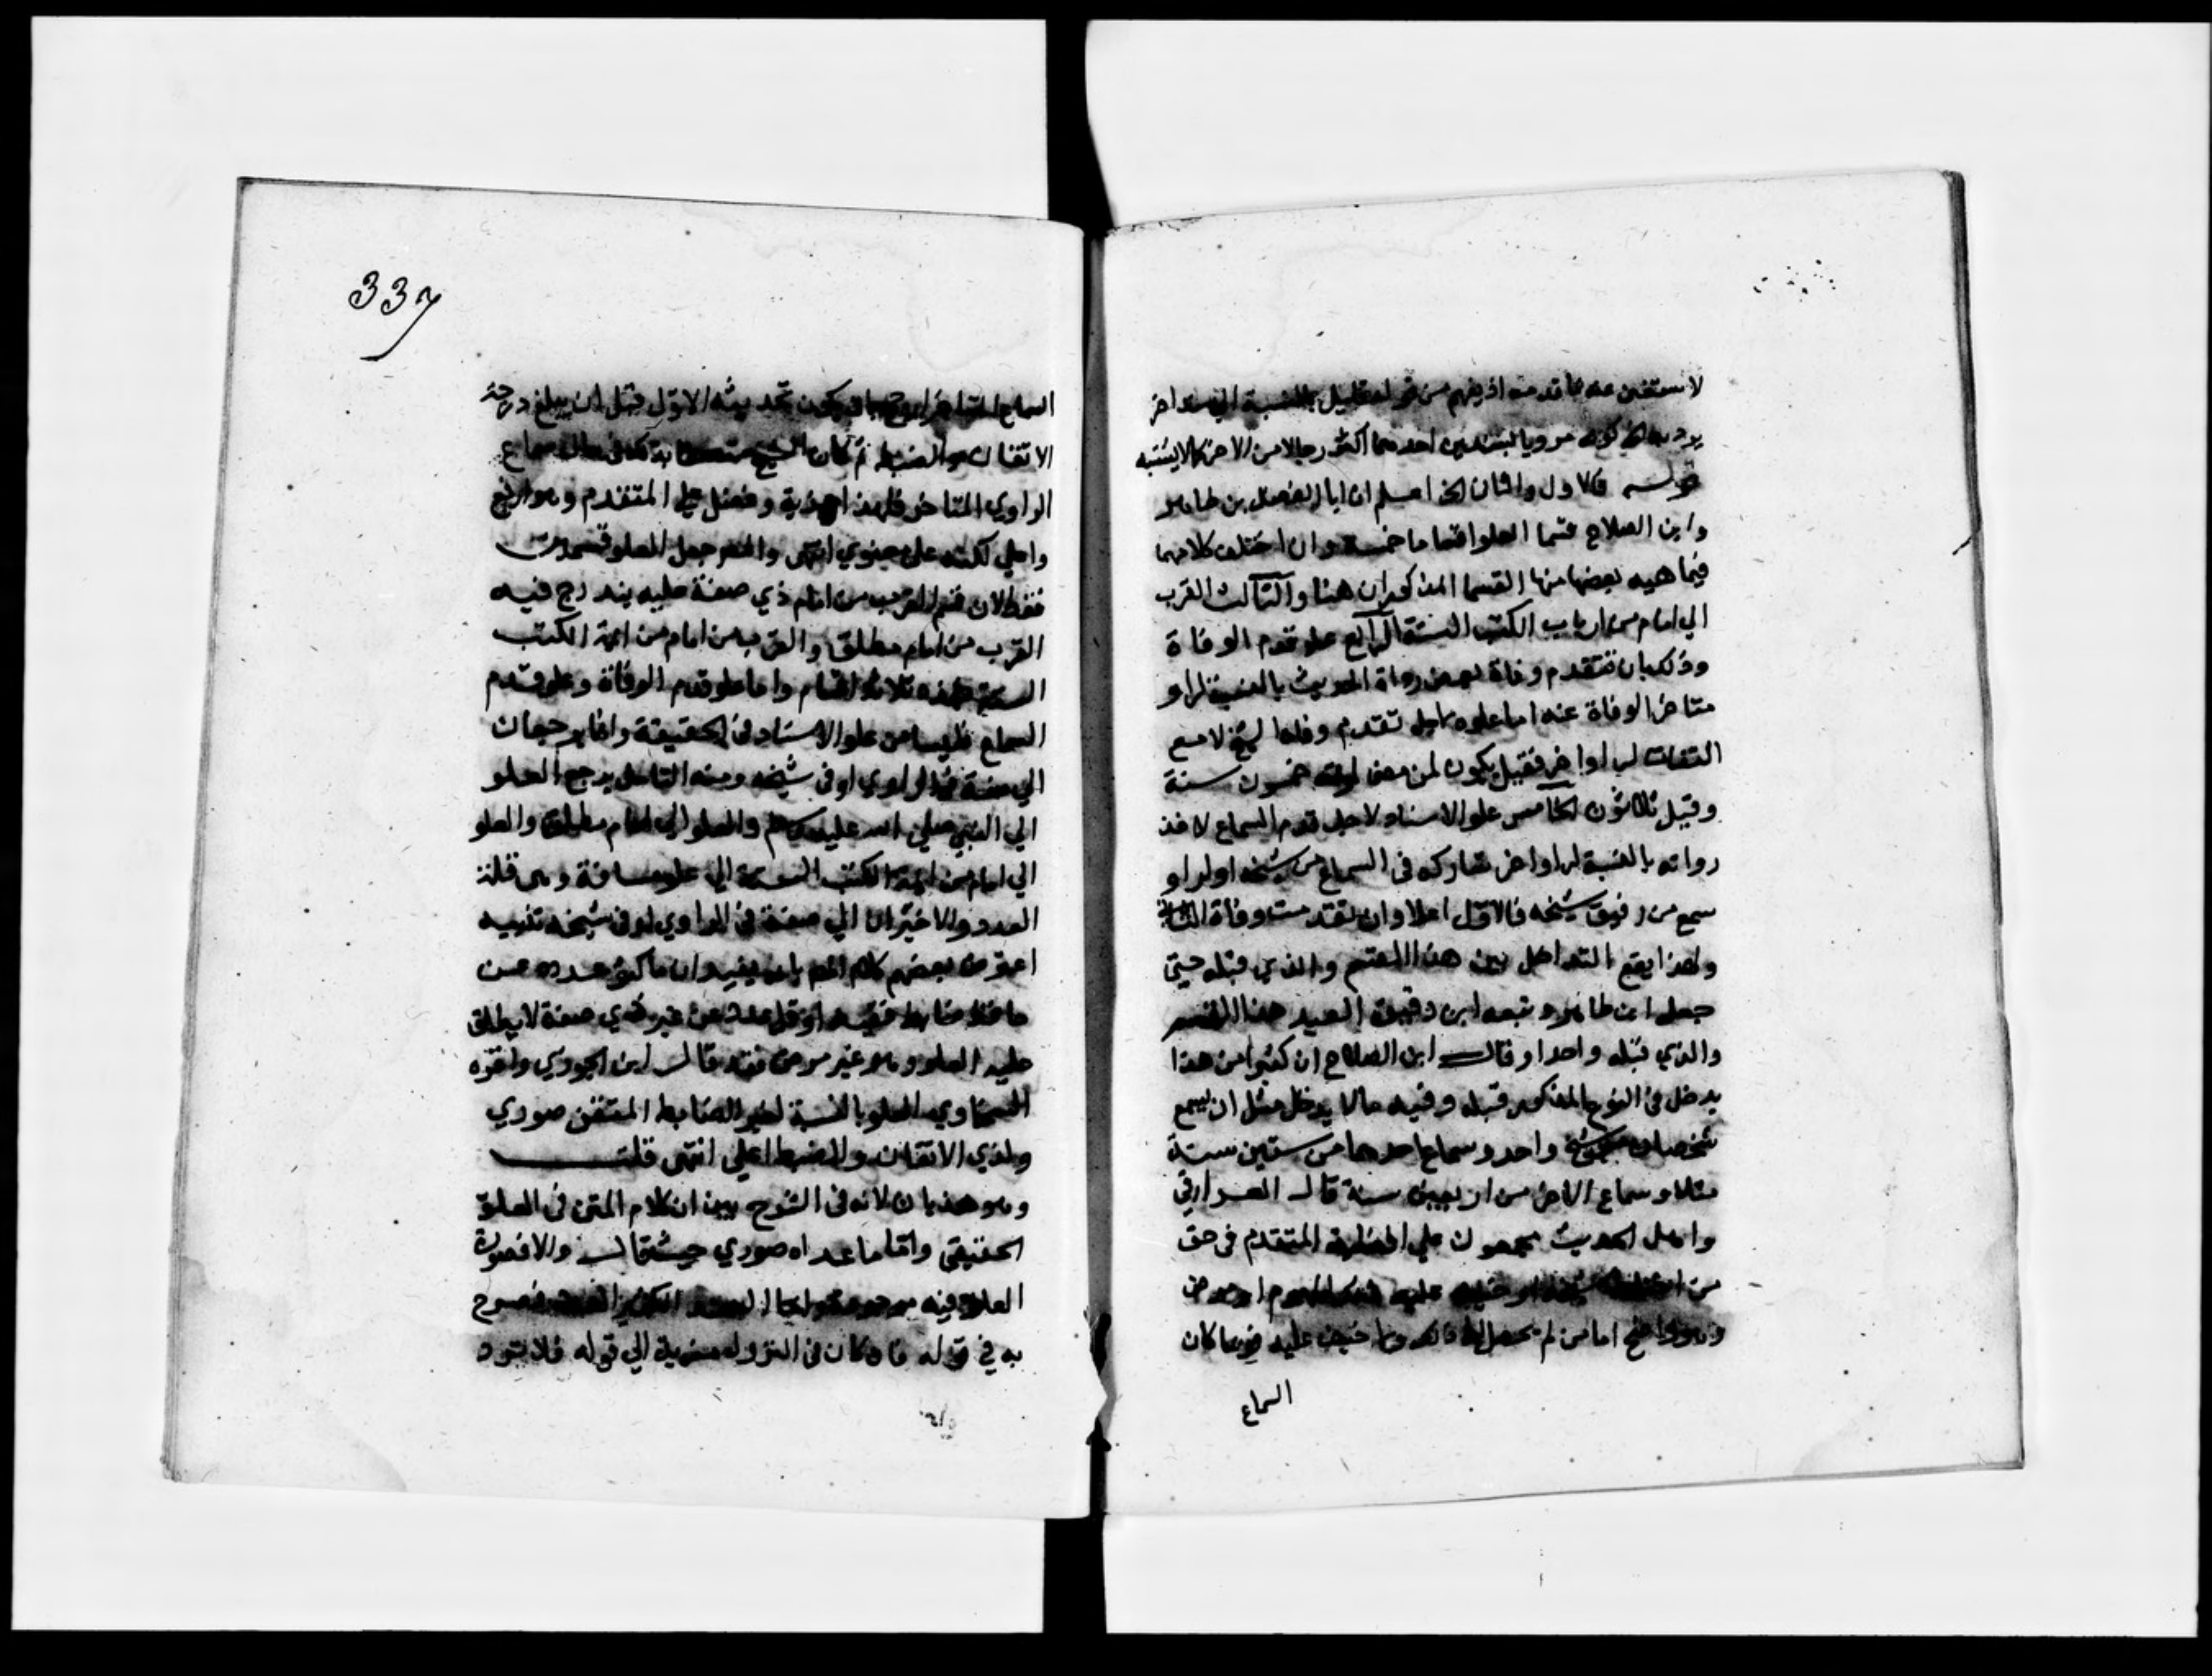 لا ستغنى عنه بما قدمته اذ يفهم من قوله قليل بالنسبة الي سند اخر
يرد به الخ كونه مرويا بسندين احدهما اكثر رجالا من الاخر كما لا يشتبه
قوله فالاول والثان الخ اعلم ان ابا الفضل بن طاهر
وابن الصلاح قسما العلو اقساما خمسة وان اختلف كلامهما
فيما هيه بعضها منها القسما المذكوران هنا والثالث القرب
الي امام من ارباب الكتب الستة الرابع علو قدم الوفاة
وذلك بان تتقدم وفاة بعض رواة الحديث بالنسبة لراو
متاخر الوفاة عنه اما علوه لاجل تقدم وفاة الشيخ لا مع
التفات لراو اخر فقيل يكون لمن مضى لوفته خمسون سنة
وقيل ثلاثون الخامس علو الاسناد لاجل قدم السماع لاخذ
رواته بالنسبة لراو اخر شاركه في السماع من شيخه او لراو
سمع من رفيق شيخه فالاول اعلا وان تقدمت وفاة الثاني
ولهذا يقع التداخل بين هذا القسم والذي قبله حتى
جعل ابن طاهر وتبعه ابن دقيق العيد هذا القسم
والذي قبله واحدا وقال ابن الصلاح ان كثيرا من هذا
يدخل في النوع المذكور قبله وفيه ما لا يدخل مثل ان يسمع
شخصان من شيخ واحد وسماع احدهما من ستين سنة
مثلا وسماع الاخر من اربعين سنة قال العراقي
واهل الحديث مجمعون علي افضلية المتقدم في حق
من اختلط شيخه او خرف عليه لهرم او مرض
وهو واضح اما من لم يحصل له ذلك وما خيف عليه فربما كان
السماع
337
السماع المتاخر ارجح بان يكون تحديثه الاول قبل ان يبلغ درجة
الاتقان والضبط ثم كان الشيخ متصفا بذلك في حالة سماع
الراوي المتاخر فلهذا مزية وفضل علي المتقدم وهو ارفع
واعلي لكنه علو معنوي انتهى والمص جعل العلو قسمين
فقط لان قسم القرب من امام ذي صفة عليه يندرج فيه
القرب من امام مطلق والقرب من امام من ايمة الكتب
الستة فهذه ثلاثة اقسام واما علو قدم الوفاة وعلو قدم
السماع فليسا من علو الاسناد في الحقيقة وانما يرجعان
الي صفة في الراوي او في شيخه وعند التامل يرجع العلو
الي النبي صلي الله عليه وسلم والعلو الي امام مطلق والعلو
الي امام من ايمة الكتب الستة الي علو مسافة وهى قلة
العدد والاخيران الي صفة في الراوي او في شيخه تنبيه
اعترض بعضهم كلام المص بانه يفيد ان ما كثر عدده عن
ضابط او قل عدده عن غير ذي صفة لا يطلق
عليه العلو وهو غير مرضى فقد قال ابن الجوزي واقره
السخاوي العلو بالنسبة لغير الضابط المتقن صوري
ولذي الاتقان والضبط اعلي انتهى قلت
وهو هذيان لانه في الشرح بين ان كلام المتن في العلو
الحقيقي واما ما عداه صوري حيث قال والا فصورة
العلو فيه موجودة فصرح
به في قوله فان كان في النزول مزية الي قوله فلا تردد